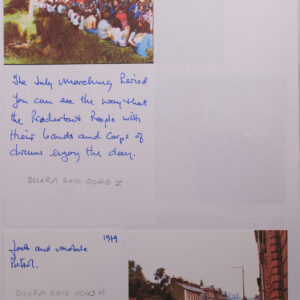 The July marching Period
You can see the way that
the Prodestant People with
their bands and Corps of
drums enjoy the day.
DUXRA 2010 0040 I
1979
foot and mobile
Patrol.
DUXRA 2010 0040 A